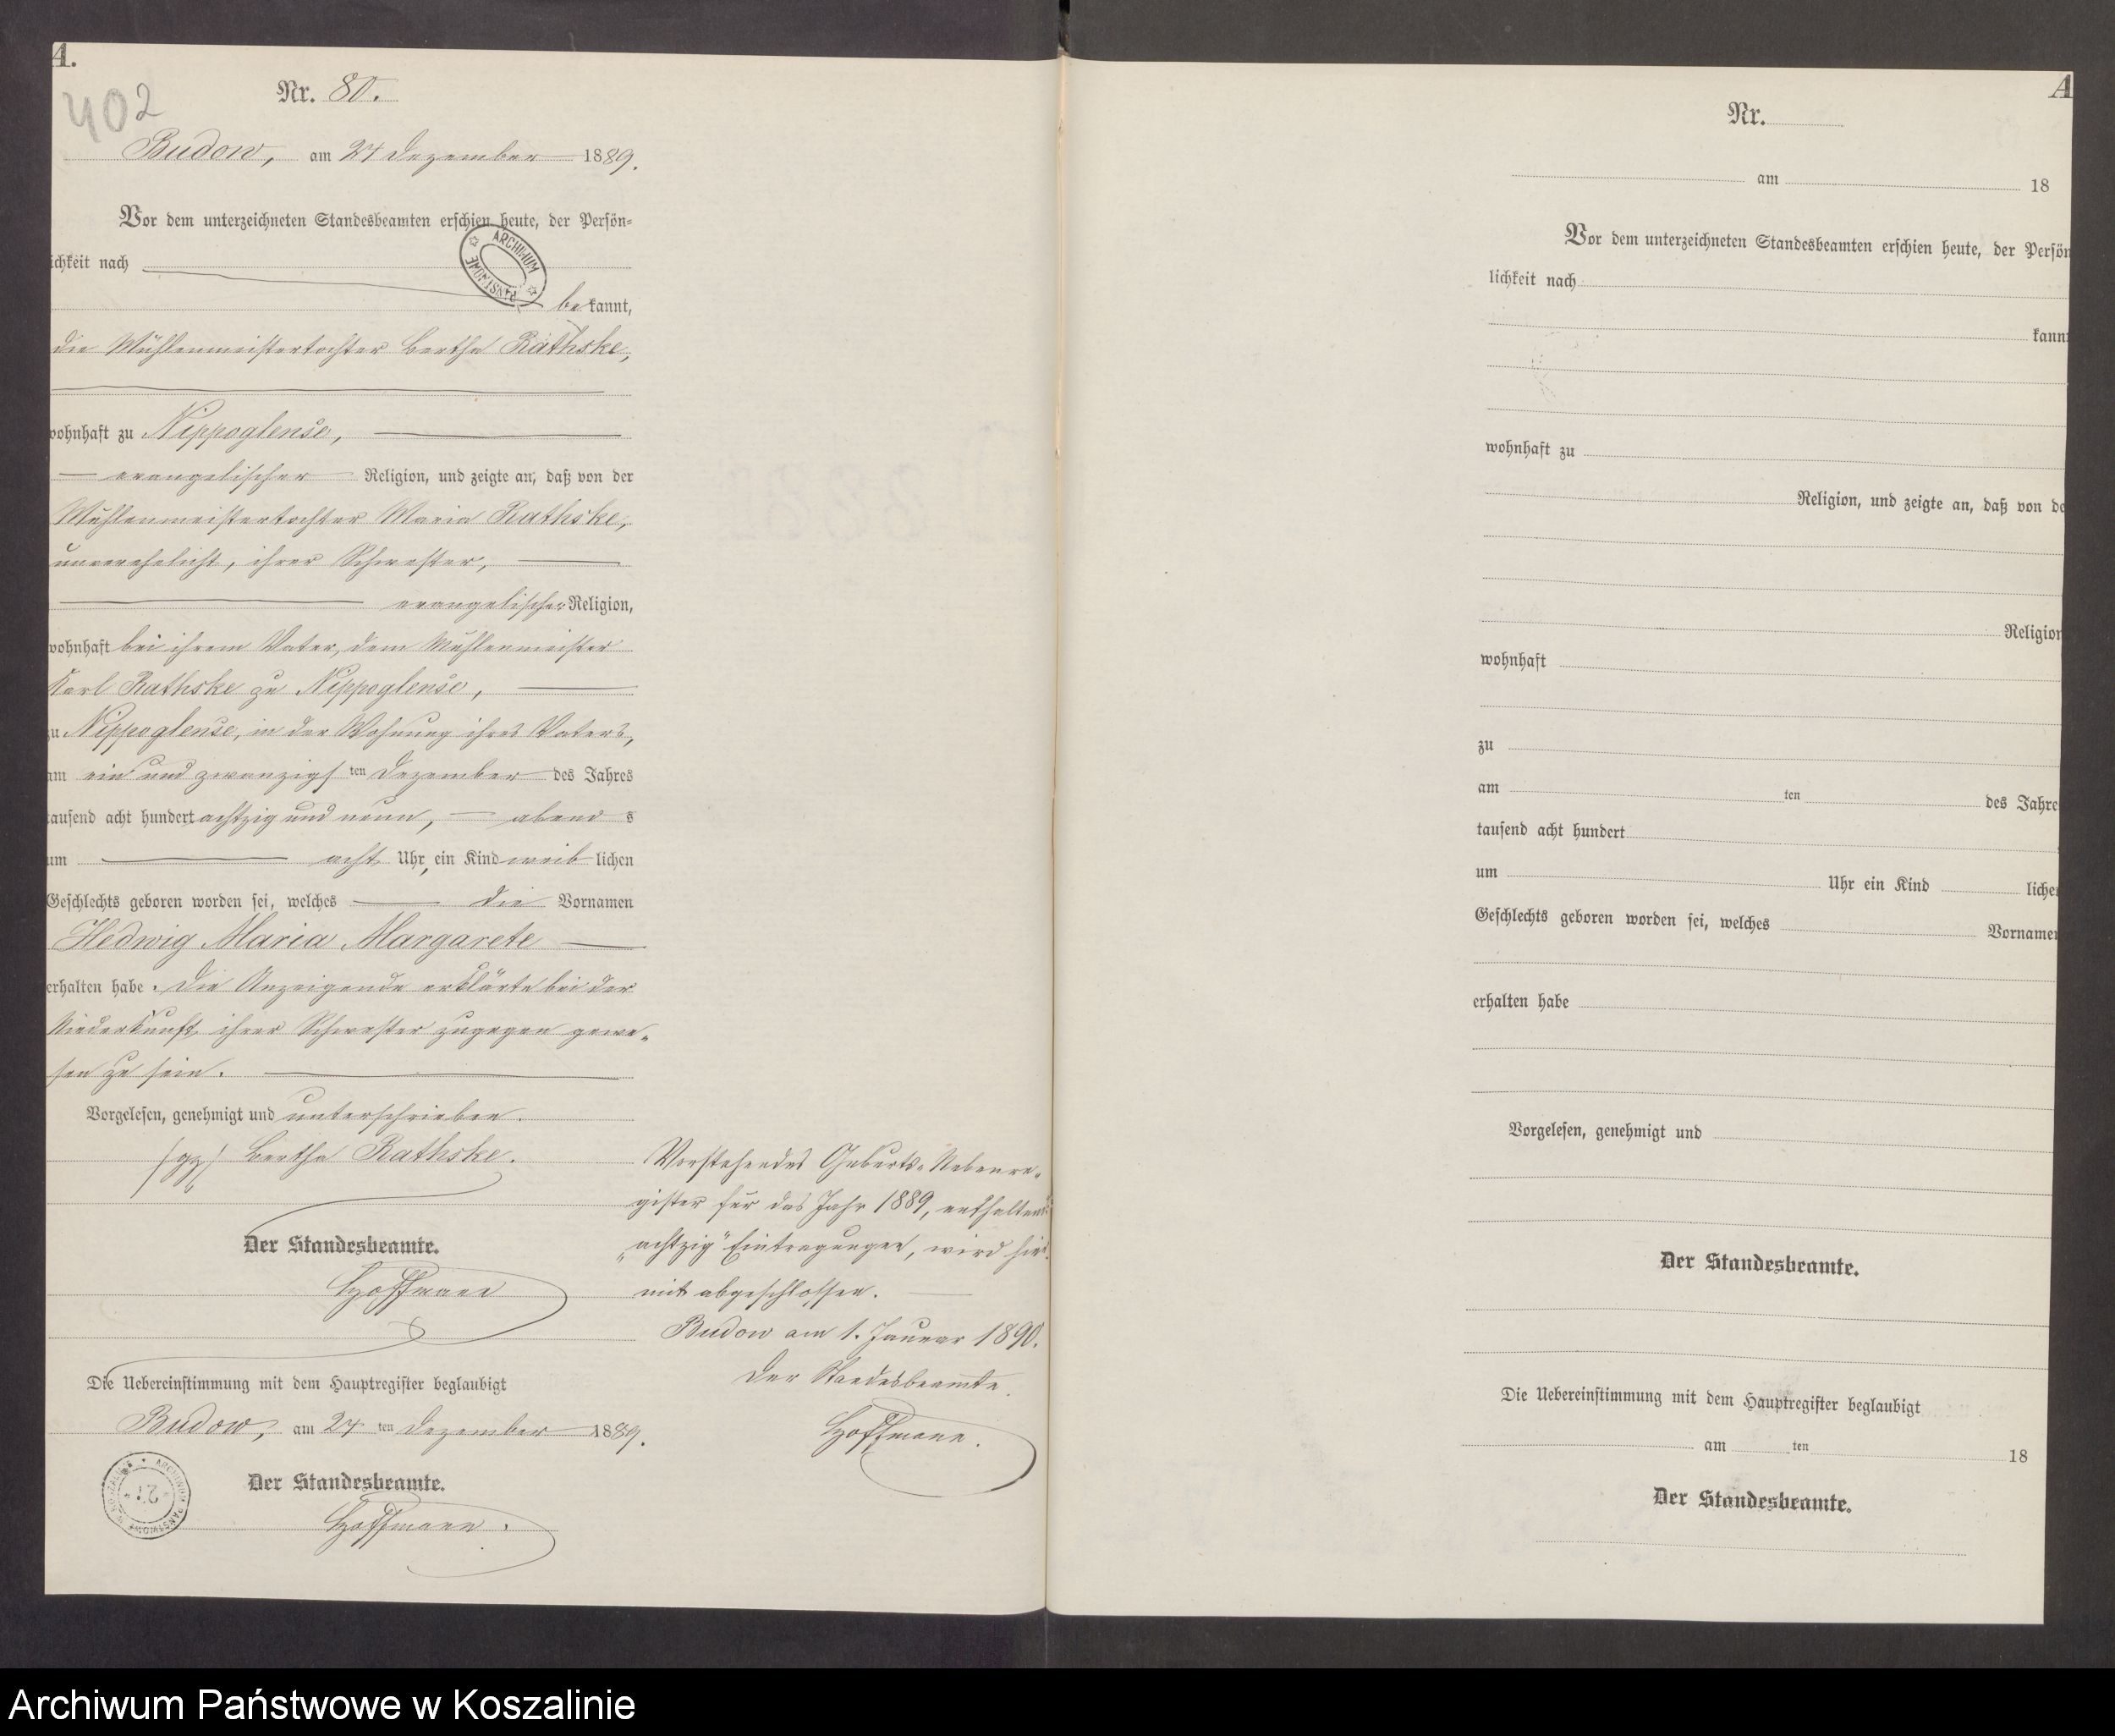 A.
402
Nr. 80.
Budow, am 24 Dezember 1889.
Vor dem unterzeichneten Standesbeamten erschien heute, der Persön=
ichkeit nach
bekannt,
die Mühlenmeistertochter Bertha Rathske,
wohnhaft zu Nippoglense,
evangelischer Religion, und zeigte an, daß von der
Mühlenmeistertochter Maria Rathske,
unverehelicht, ihrer Schwester,
evangelischer Religion,
wohnhaft bei ihrem Vater, dem Mühlenmeister
Karl Rathske zu Nippoglense,
zu Nippoglense, in der Wohnung ihres Vaters,
am ein und zwanzigsten Dezember des Jahres
tausend acht hundert achtzig und neun, abends
um acht Uhr, ein Kind weiblichen
Geschlechts geboren worden sei, welches die Vornamen
Hedwig Maria Margarete
erhalten habe. Die Anzeigende erklärte bei der
Niederkunft ihrer Schwester zugegen gewe=
sen zu sein.
Vorgelesen, genehmigt und unterschrieben.
(gz) Bertha Rathske.
Der Standesbeamte.
Hoffmann
Die Uebereinstimmung mit dem Hauptregister beglaubigt
Budow, am 24ten Dezember 1889.
Der Standesbeamte.
Hoffmann.
ARCHIWUM PAŃSTWOWE
ARCHIWUM PAŃSTWOWE W KOSZALINIE
27
Vorstehendes Geburts=Nebenre=
gister für das Jahr 1889, enthaltend
„achtzig“ Eintragungen, wird hier
mit abgeschlossen.
Budow am 1. Januar 1890.
Der Standesbeamte.
Hoffmann.
A
Nr.
am 18
Vor dem unterzeichneten Standesbeamten erschien heute, der Persön
lichkeit nach
kannt
wohnhaft zu
Religion, und zeigte an, daß von de
Religion
wohnhaft
zu
am ten des Jahre
tausend acht hundert
um Uhr ein Kind liche
Geschlechts geboren worden sei, welches Vorname
erhalten habe
Vorgelesen, genehmigt und
Der Standesbeamte.
Die Uebereinstimmung mit dem Hauptregister beglaubigt
am ten 18
Der Standesbeamte.
Archiwum Państwowe w Koszalinie